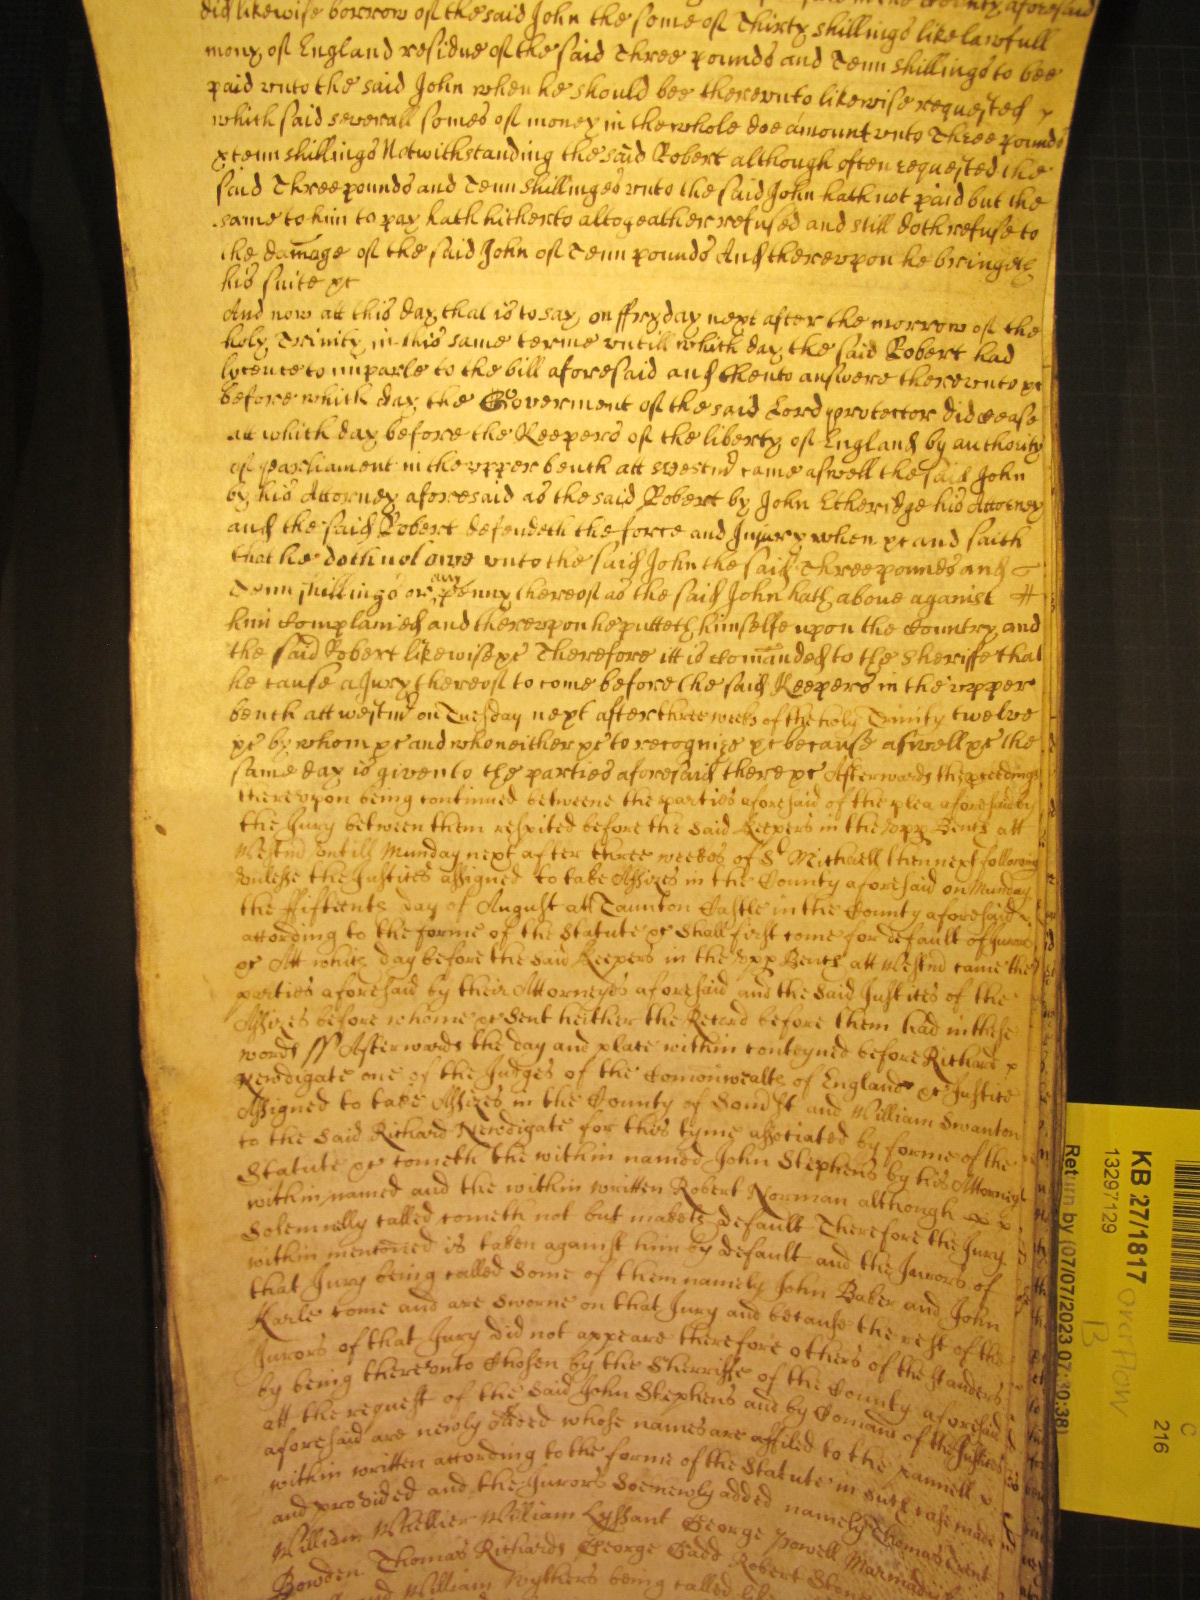 did likewise borrow of the said John the some of Thirty shillings like lawfull
mony of England residue of the said Three pounds and Tenn shillings to bee
paid vnto the said John when he should bee therevnto likewise requested
which said severall somes of money in the whole doe amount vnto Three pounds
& tenn shillings Notwithstanding the said Robert although often requested the
said Three pounds and Tenn shillinges vnto the said John hath not paid but the
same to him to pay hath hitherto altogeather refused and still doth refuse to
the damage of the said John of Tenn pounds And therevpon he bringeth
his suite &c
And now att this day that is to say on ffryday next after the morrow of the
holy Trinity in this same terme vntill which day the said Robert had
lycence to imparle to the bill aforesaid and then to answere therevnto &c
before which day the Goverment of the said Lord protector did cease
att which day before the Keepers of the liberty of England by authority
of Parliament in the vpper bench att Westmr came aswell the said John
by his Attorney aforesaid as the said Robert by John Etheridge his Attorney
and the said Robert defendeth the force and Injury when &c and saith
that he doth not owe vnto the said John the said Three pounds and
Tenn shillings or any penny thereof as the said John hath above against
him Complained and therevpon he putteth himselfe upon the Country and
the said Robert likewise &c Therefore itt is comanded to the Sheriffe that
he cause a Jury thereof to come before the said Keepers in the vpper
bench att westmr on Tuesday next after three weeks of the holy Trinity twelve
&c by whom &c and who neither &c to recognize &c because aswell &c the
same day is given to the parties aforesaid there &c Afterwards the pceedings
therevpon being continued betweene the parties aforesaid of the plea aforesaid by
the Jury between them respited before the said Keepers in the vpp Bench att
Westmr vntill Munday next after three weekes of St Michaell then next following
vnlesse the Justices assigned to take Assizes in the County aforesaid on Munday
the ffifteenth day of August att Taunton Castle in the County aforesaid
according to the forme of the Statute &c shall first come for default of Jurors
&c Att which day before the said Keepers in the vpp Bench att Westmr came the
parties aforesaid by their Attorneyes aforesaid and the said Justices of the
Assizes before whome &c sent heither the Record before them had in these
words ss Afterwards the day and place within conteyned before Richard
Newdigate one of the Judges of the Comonwealth of England &c Justice
Assigned to take Assizes in the County of Somst and William Swanton
to the said Richard Newdigate for this tyme associated by forme of the
Statute &c cometh the within named John Stephens by his Attorney
within named and the within written Robert Norman although
Solemnelly called cometh not but maketh default Therefore the Jury
within mentoned is taken against him by default and the Jurors of
that Jury being called some of them namely John Baker and John
Karle come and are sworne on that Jury and because the rest of the
Jurors of that Jury did not appeare therefore others of the standers
by being therevnto Chosen by the Sherriffe of the County aforesaid
att the request of the said John Stephens and by Comand of the Justices
aforesaid are newly added whose names are affiled to the pannell
within written according to the forme of the Statute in such case made
and provided and the Jurors soe newly added namely Thomas Trent
William Mellier William Lyssant George Powell
Bowden Thomas Richards George Gadd Robert
and William Wythers being called
KB 27/1817 overflow
13297129
B
C
216
Return by (07/07/2023 07:30:38)